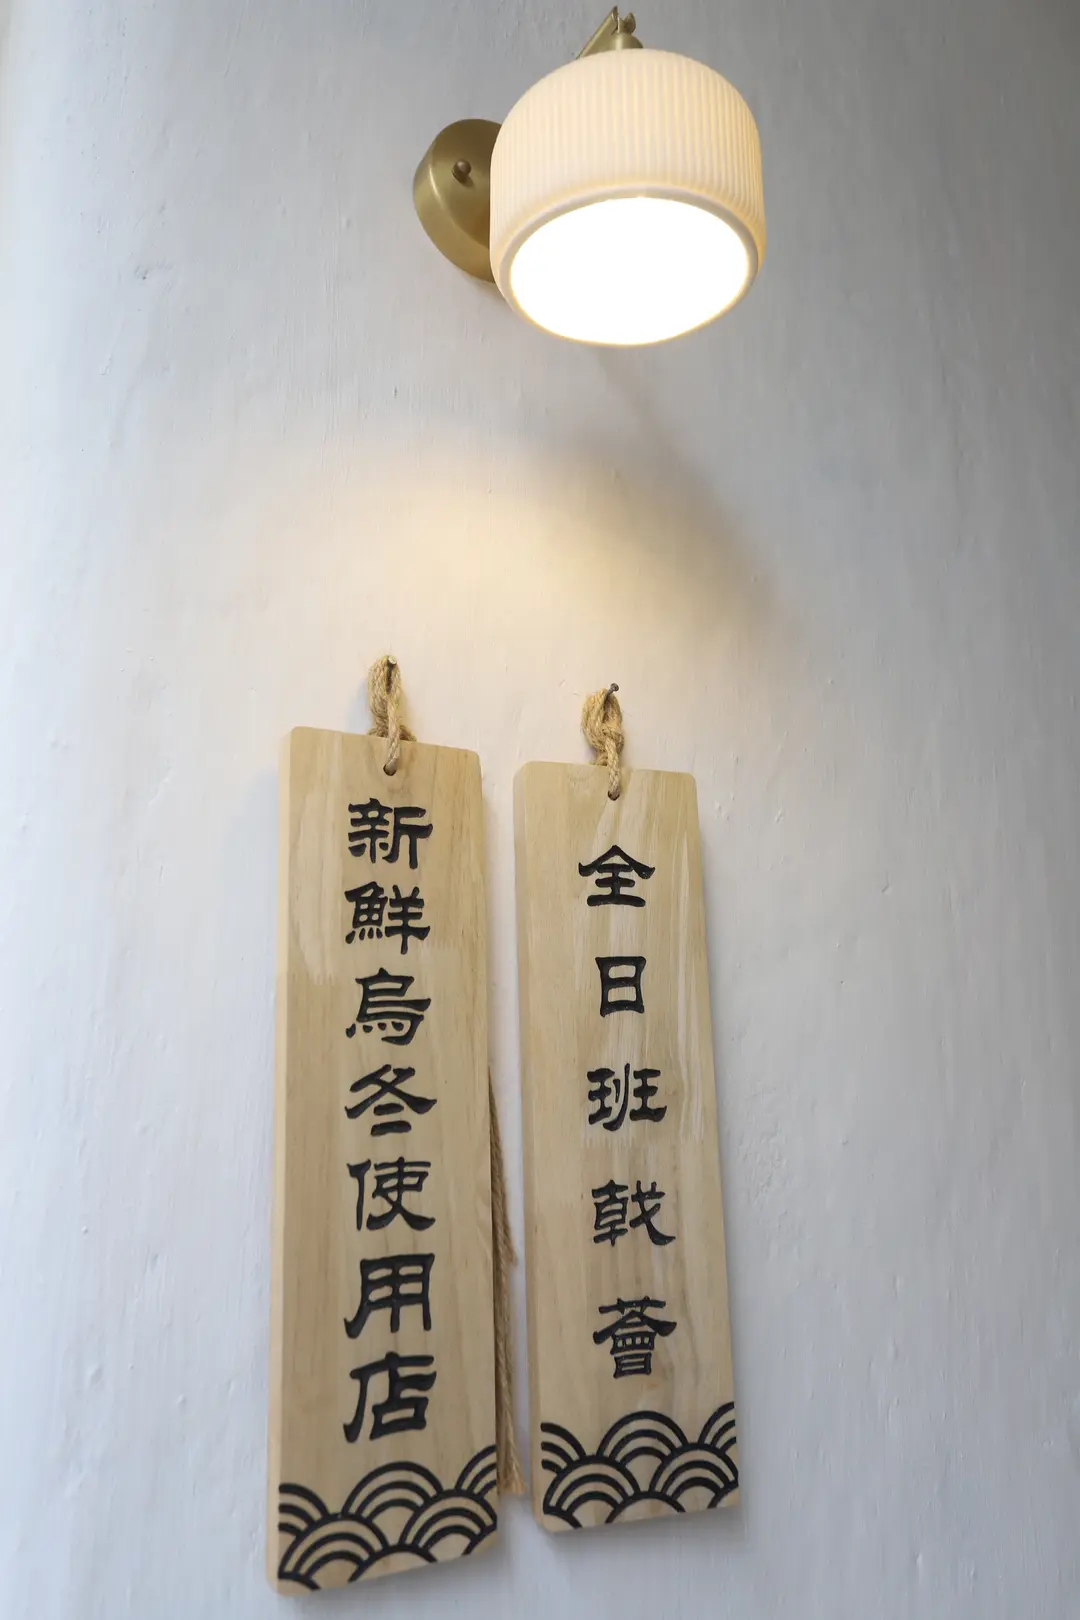 全日班戟薈
新鮮烏冬使用店